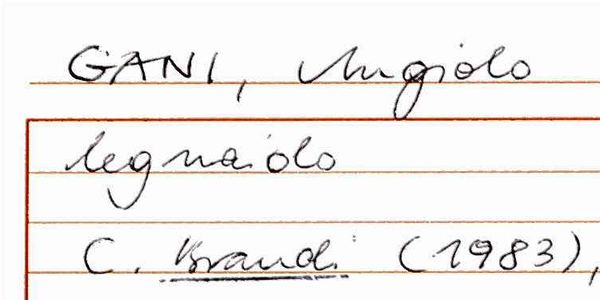 GANI, Angiolo
legnaiolo
C. Brandi (1983),